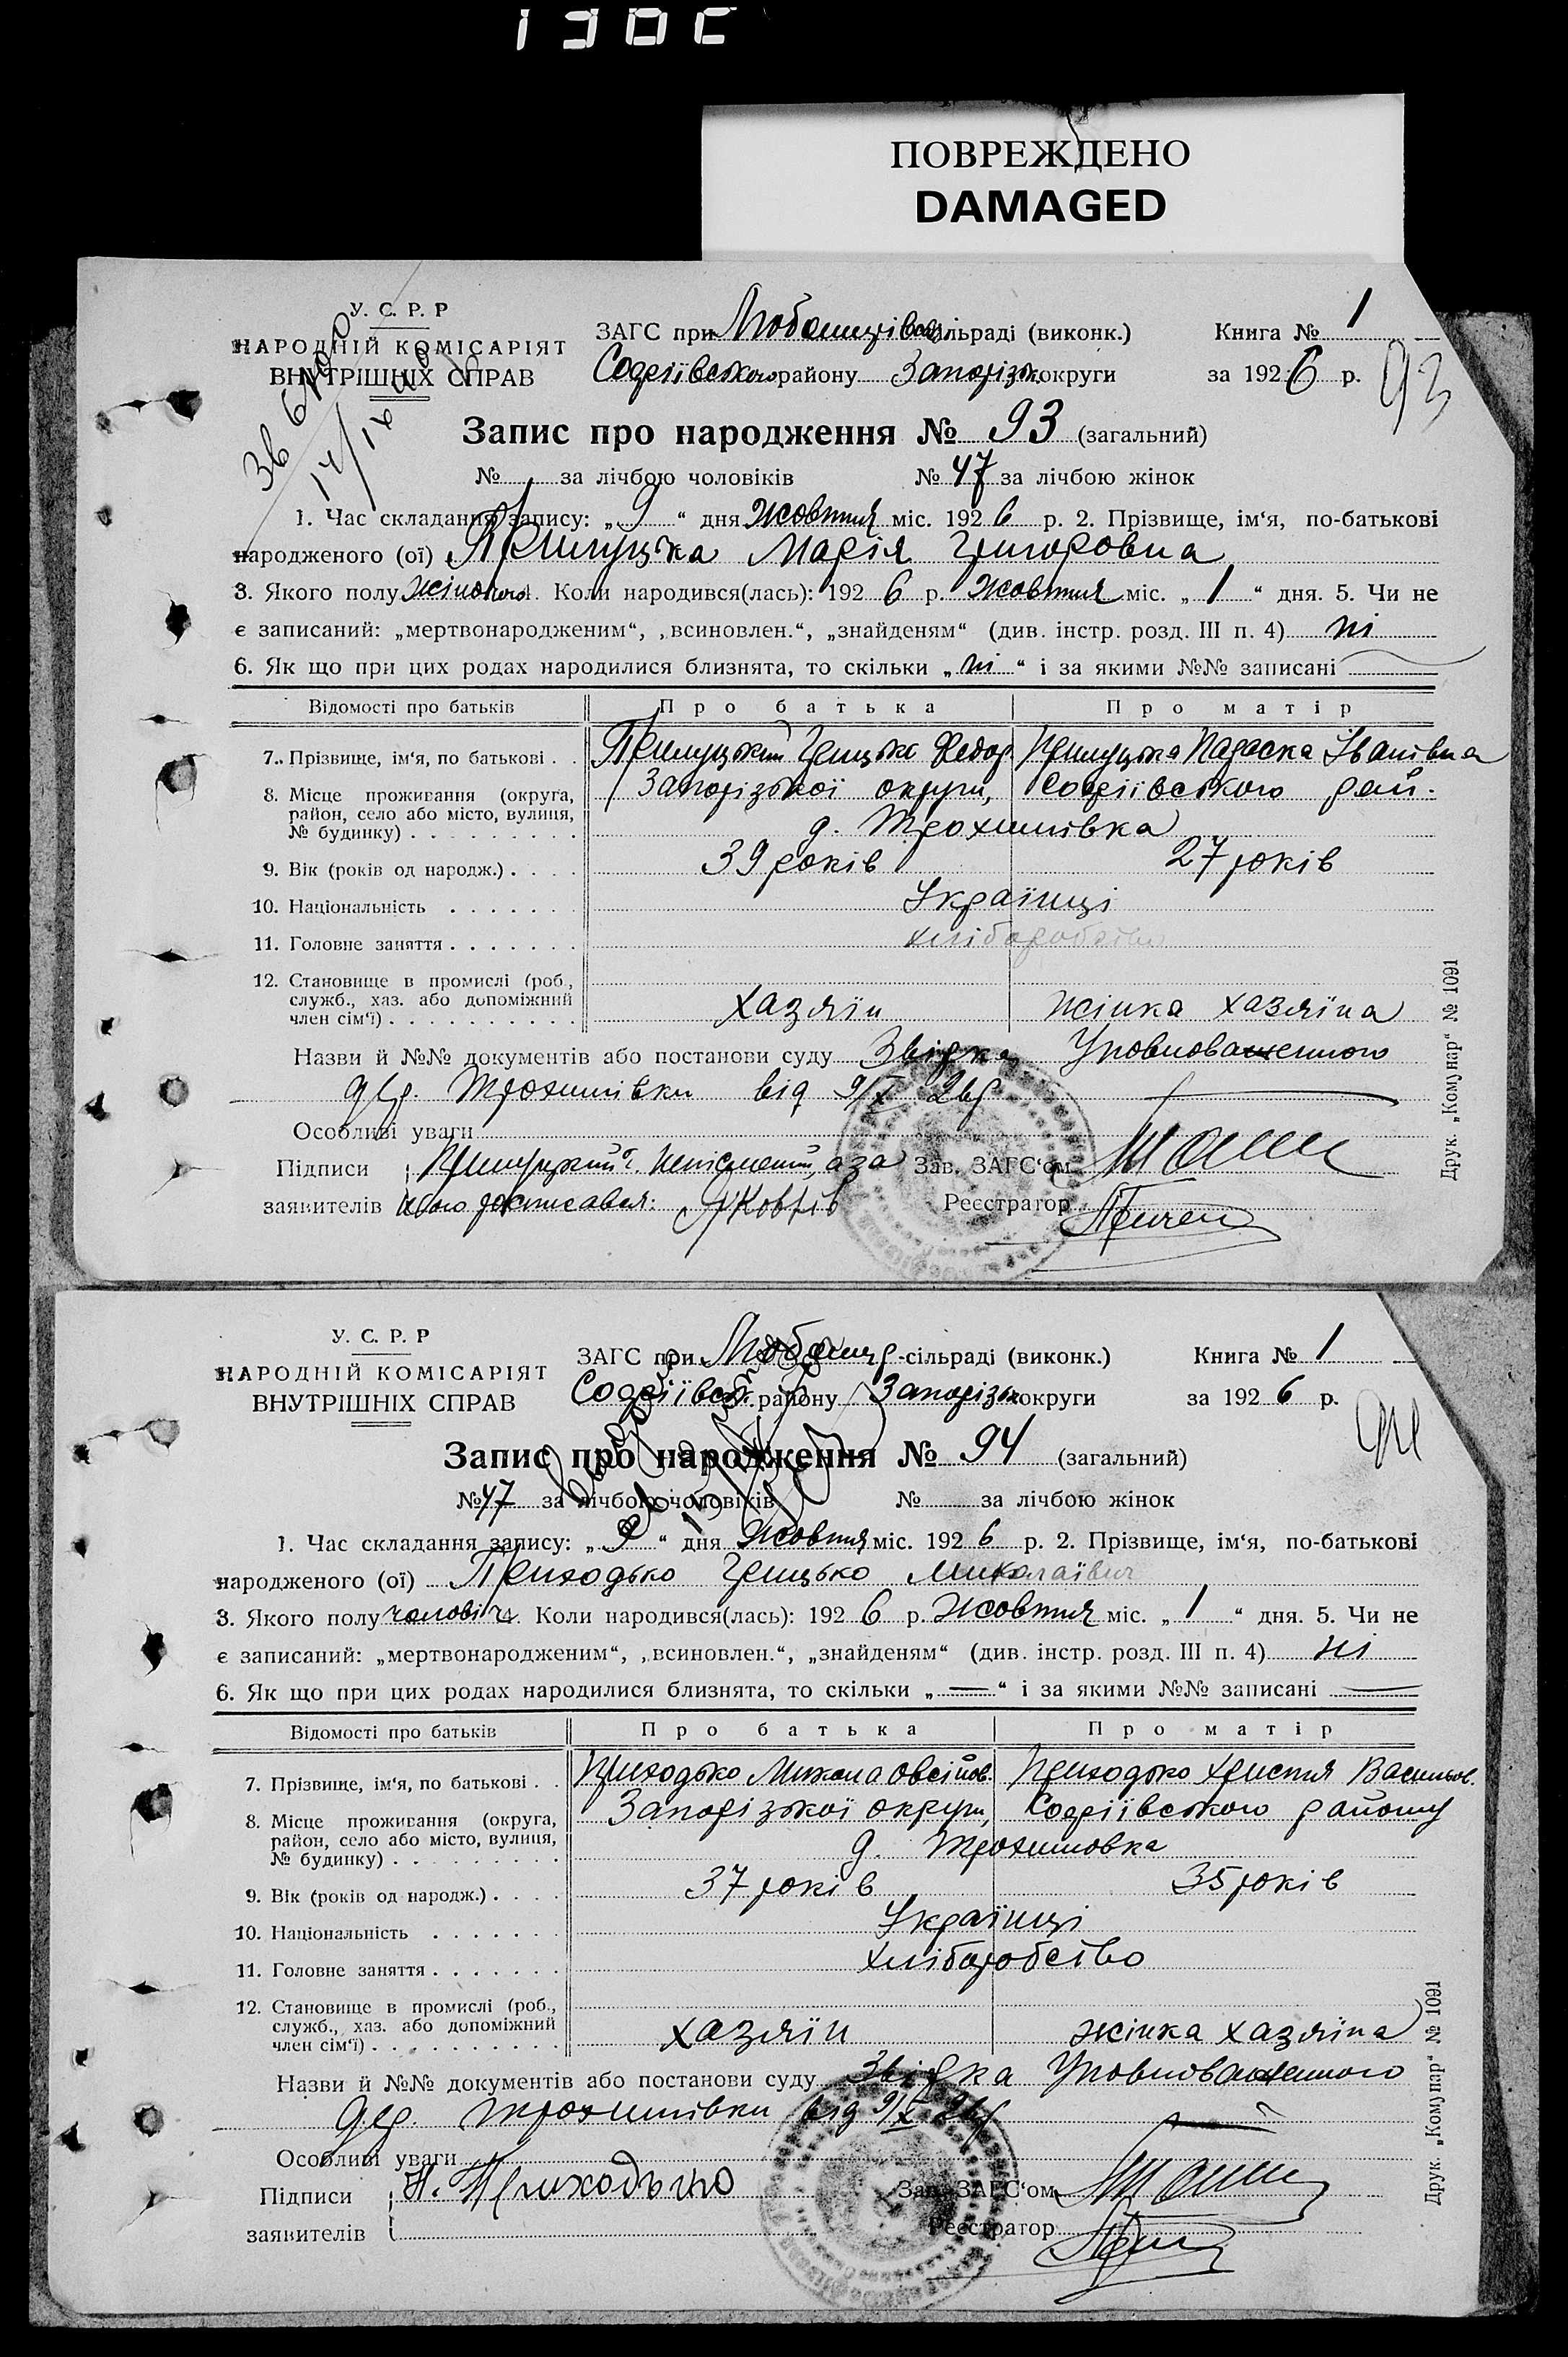 ПОВРЕЖДЕНО
DAMAGED
У. С. Р. Р
НАРОДНІЙ КОМІСАРІЯТ
ВНУТРІШНІХ СПРАВ
ЗАГС при Любомирівськ. сільраді (виконк.) Книга № 1
Софіївського району Запорізьк. округи за 1926 р.
93
Запис про народження № 93 (загальний)
№ за лічбою чоловіків № 47 за лічбою жінок
1. Час складання запису: „9“ дня жовтня міс. 1926 р. 2. Прізвище, ім'я, по-батькові
народженого (ої) Прилуцька Марія Григоровна
3. Якого полу жіночого 4. Коли народився(лась): 1926 р. жовтня міс. „1“ дня. 5. Чи не
є записаний: „мертвонародженим“, „всиновлен.“, „знайденям“ (див. інстр. розд. III п. 4) ні
6. Як що при цих родах народилися близнята, то скільки „ні“ і за якими №№ записані
Відомості про батьків Про батька Про матір
7. Прізвище, ім'я, по батькові . . Прилуцький Грицько Федор. Прилуцька Параска Іванівна
8. Місце проживання (округа, район, село або місто, вулиця, № будинку) Запорізької округи, Софіївського рай.
д. Трохимівка
9. Вік (років од народж.) 39 років 27 років
10. Національність Українці
11. Головне заняття хліборобство
12. Становище в промислі (роб., служб., хаз. або допоміжний член сім'ї) хазяїн жінка хазяїна
Назви й №№ документів або постанови суду Звірка Уповноваженного
дер. Трохимівки від 9/X 26 р
Особливі уваги
Підписи Прилуцький Г. неписмений, а за Зав. ЗАГС'ом
заявителів його росписався: Яковлів Реєстратор
Друк. „Комунар“ № 1091
У. С. Р. Р
НАРОДНІЙ КОМІСАРІЯТ
ВНУТРІШНІХ СПРАВ
ЗАГС при Любомир-сільраді (виконк.) Книга № 1
Софіївськ. району Запорізьк. округи за 1926 р.
94
Запис про народження № 94 (загальний)
№ 47 за лічбою чоловіків № за лічбою жінок
1. Час складання запису: „9“ дня жовтня міс. 1926 р. 2. Прізвище, ім'я, по-батькові
народженого (ої) Приходько Грицько Миколаївич
3. Якого полу чоловіч. 4. Коли народився(лась): 1926 р. жовтня міс. „1“ дня. 5. Чи не
є записаний: „мертвонародженим“, „всиновлен.“, „знайденям“ (див. інстр. розд. III п. 4) ні
6. Як що при цих родах народилися близнята, то скільки „—“ і за якими №№ записані —
Відомості про батьків Про батька Про матір
7. Прізвище, ім'я, по батькові . . Приходько Микола Овсійов. Приходько Христя Васильов.
8. Місце проживання (округа, район, село або місто, вулиця, № будинку) Запорізької округи, Софіївського району
д. Трохимовка
9. Вік (років од народж.) 37 років 35 років
10. Національність Українці
11. Головне заняття хліборобство
12. Становище в промислі (роб., служб., хаз. або допоміжний член сім'ї) хазяїн жінка хазяїна
Назви й №№ документів або постанови суду Звірка Уповноваженного
дер. Трохимівки від 9/X 26 р
Особливі уваги
Підписи Н. Приходько Зав. ЗАГС'ом
заявителів Реєстратор
Друк. „Комунар“ № 1091